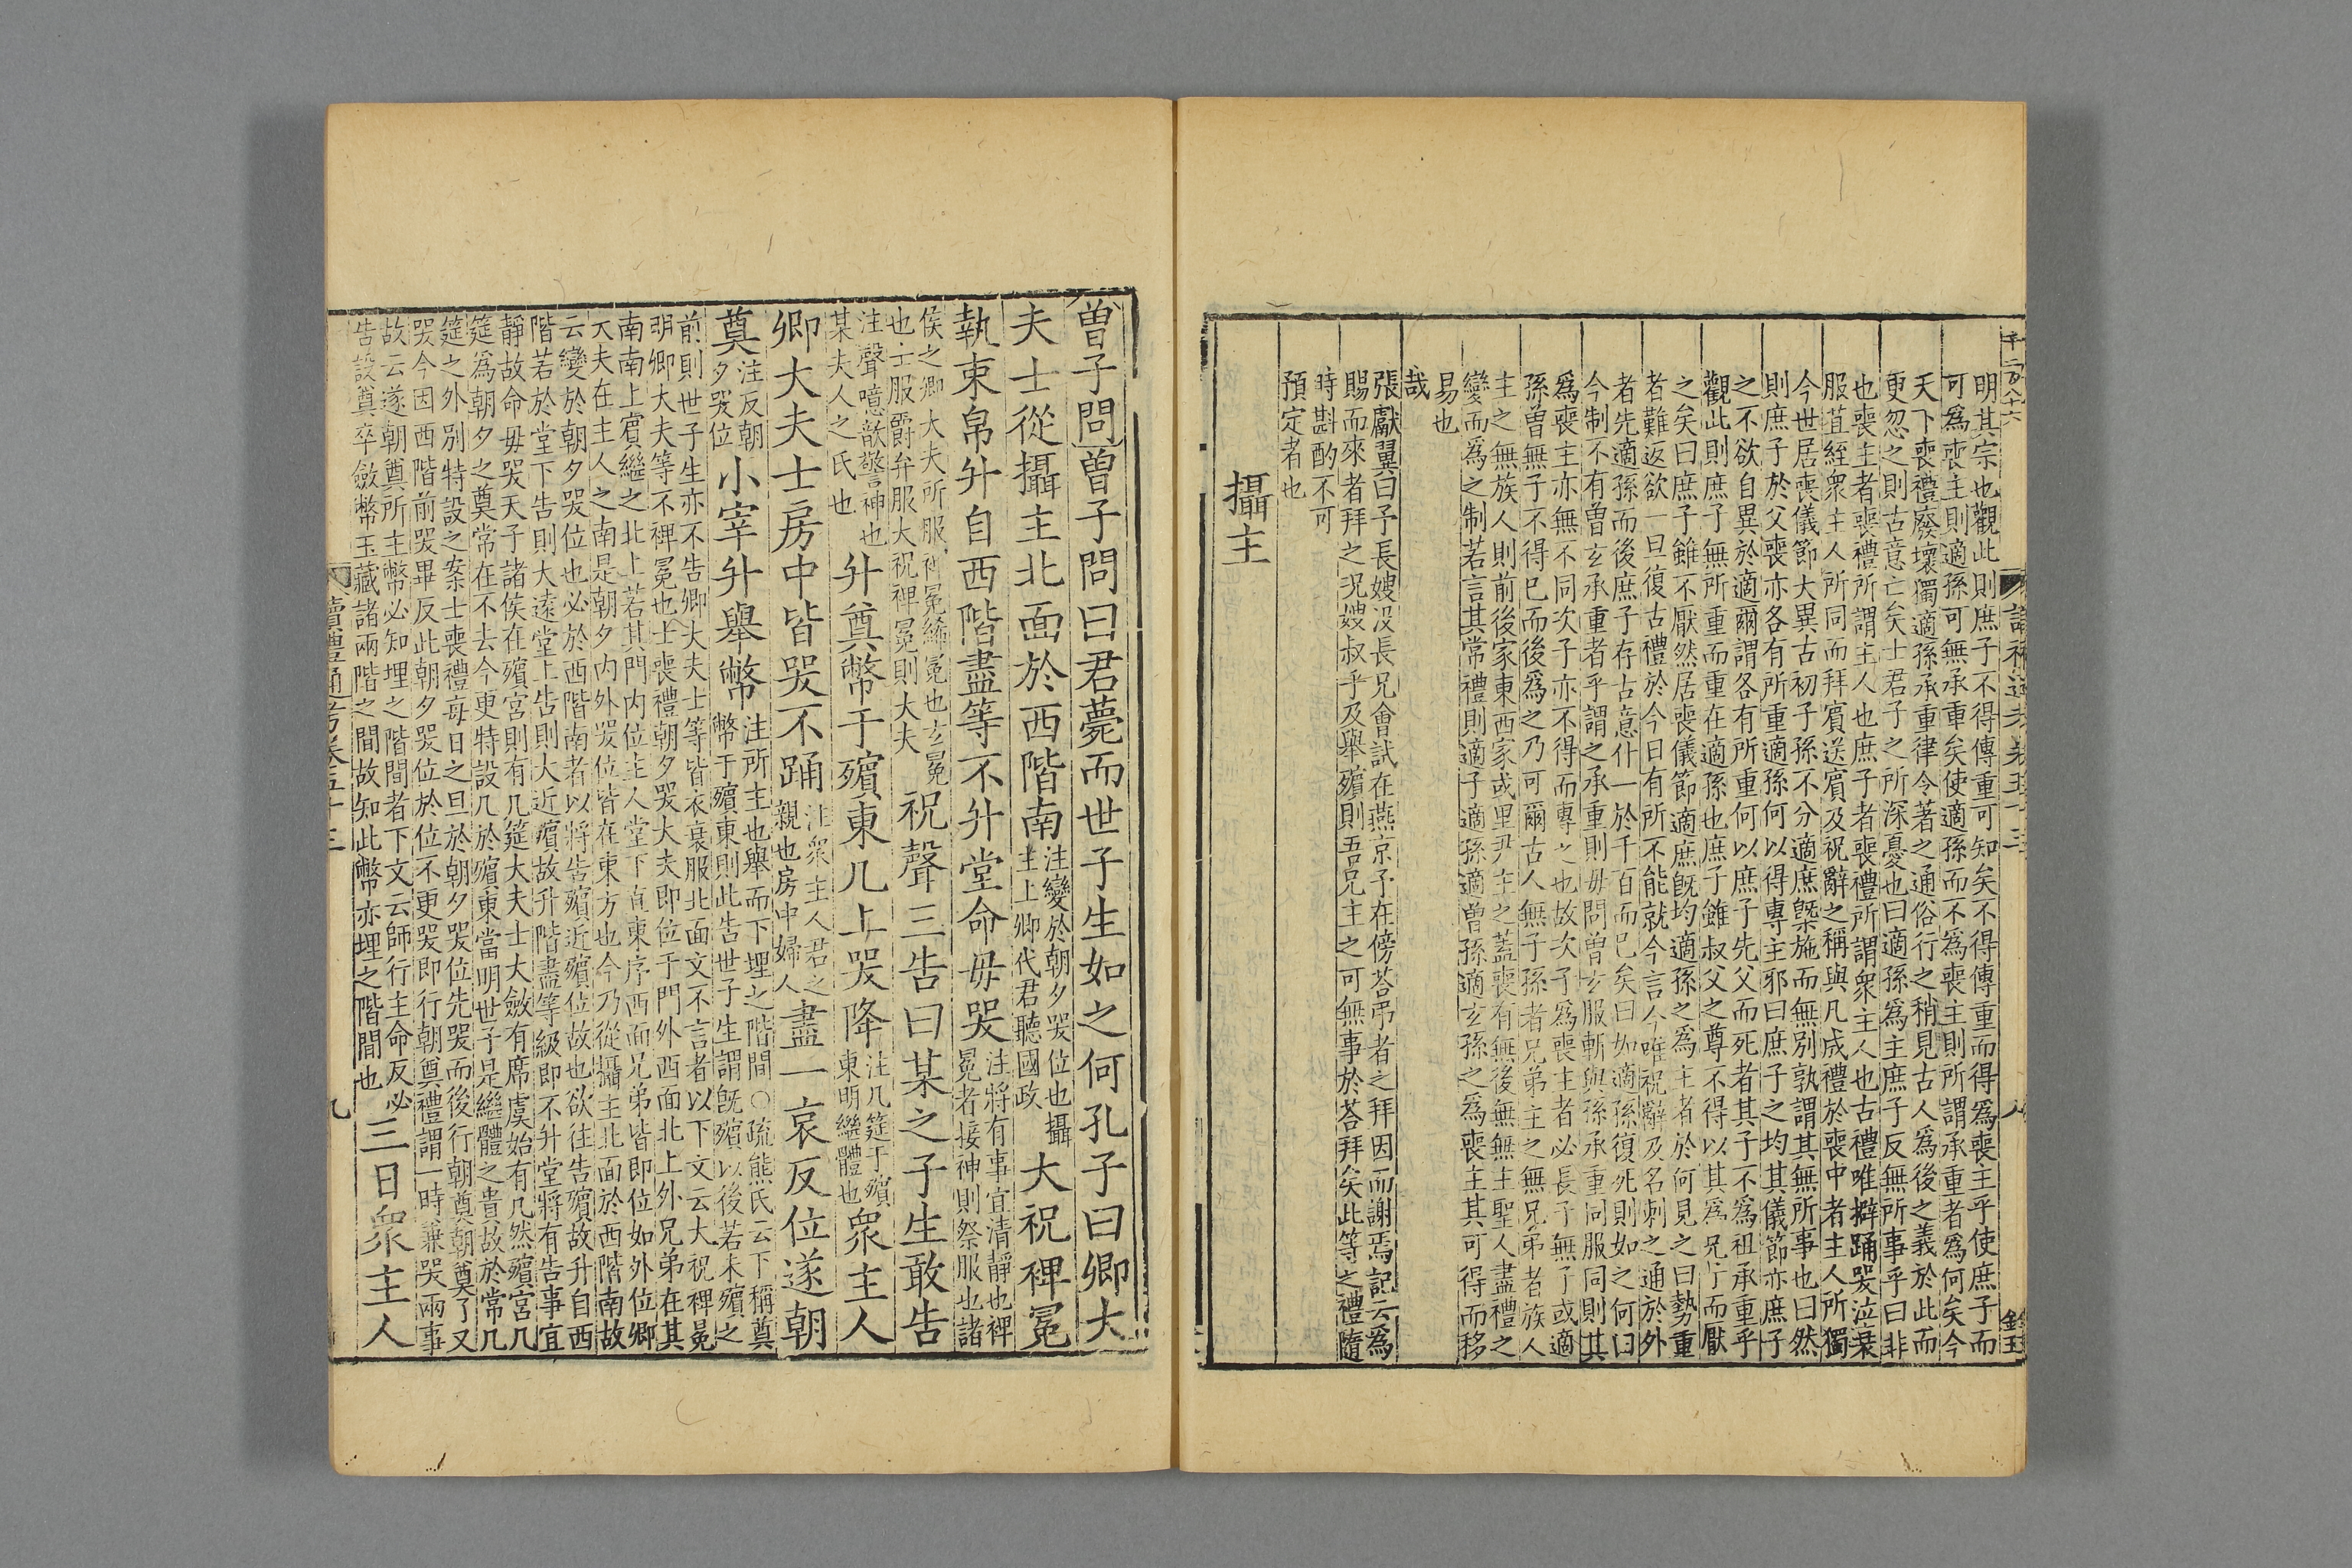 明其宗也觀此則庶子不得傳重可知矣不得傳重而得爲喪主乎使庶子而
可爲喪主則適孫可無承重矣使適孫而不爲喪主則所謂承重者爲何矣今
天下喪禮廢壞獨適孫承重律令著之通俗行之稍見古人爲後之義於此而
更忽之則古意亡矣士君子之所深憂也曰適孫爲主庶子反無所事乎曰非
也喪主者喪禮所謂主人也庶子者喪禮所謂衆主人也古禮唯擗踊哭泣衰
服苴絰衆主人所同而拜賓送賓及祝辭之稱與凡成禮於喪中者主人所獨
今世居喪儀節大異古初子孫不分適庶槩施而無別孰謂其無所事也曰然
則庶子於父喪亦各有所重適孫何以得專主邪曰庶子之均其儀節亦庶子
之不欲自異於適爾謂各有所重何以庶子先父而死者其子不爲祖承重乎
觀此則庶子無所重而重在適孫也庶子雖叔父之尊不得以其爲兄子而厭
之矣曰庶子雖不厭然居喪儀節適庶旣均適孫之爲主者於何見之曰勢重
者難返欲一旦復古禮於今日有所不能就今言今唯祝辭及名刺之通於外
者先適孫而後庶子存古意什一於千百而已矣曰如適孫復死則如之何曰
今制不有曽玄承重者乎謂之承重則毋問曽玄服斬與孫承重同服同則其
爲喪主亦無不同次子亦不得而專之也故次子爲喪主者必長子無子或適
孫曽無子不得已而後爲之乃可爾古人無子孫者兄弟主之無兄弟者族人
主之無族人則前後家東西家或里尹主之蓋喪有無後無無主聖人盡禮之
變而爲之制若言其常禮則適子適孫適曽孫適玄孫之爲喪主其可得而移
易也
哉
張獻翼曰予長嫂没長兄會試在燕京予在傍荅弔者之拜因而謝焉記云爲
賜而來者拜之况嫂叔乎及舉殯則吾兄主之可無事於荅拜矣此等之禮隨
時斟酌不可
預定者也
攝主
曽子問曽子問曰君薨而世子生如之何孔子曰卿大
夫士從攝主北面於西階南注變於朝夕哭位也攝主上卿代君聽國政大祝裨冕
執束帛升自西階盡等不升堂命毋哭注將有事宜清靜也裨冕者接神則祭服也諸
侯之卿大夫所服裨冕絺冕也玄冕也士服爵弁服大祝裨冕則大夫祝聲三告曰某之子生敢告
注聲噫歆警神也某夫人之氏也升奠幣于殯東几上哭降注几筵于殯東明繼體也衆主人
卿大夫士房中皆哭不踊注衆主人君之親也房中婦人盡一哀反位遂朝
奠注反朝夕哭位小宰升舉幣注所主也舉而下埋之階間○疏熊氏云下稱奠幣于殯東則此告世子生謂旣殯以後若未殯之
前則世子生亦不告卿大夫士等皆衣衰服北面文不言者以下文云大祝裨冕
明卿大夫等不裨冕也士喪禮朝夕哭大夫即位于門外西面北上外兄弟在其
南南上賓繼之北上若其門内位主人堂下直東序西面兄弟皆即位如外位卿
大夫在主人之南是朝夕内外哭位皆在東方也今乃從攝主北面於西階南故
云變於朝夕哭位也必於西階南者以將告殯近殯位故也欲往告殯故升自西
階若於堂下告則大遠堂上告則大近殯故升階盡等級即不升堂將有告事宜
靜故命毋哭天子諸侯在殯宮則有几筵大夫士大斂有席虞始有几然殯宮几
筵爲朝夕之奠常在不去今更特設几於殯東當明世子是繼體之貴故於常几
筵之外別特設之案士喪禮每日之旦於朝夕哭位先哭而後行朝奠朝奠了又
哭今因西階前哭畢反此朝夕哭位於位不更哭即行朝奠禮謂一時兼哭兩事
故云遂朝奠所主幣必知埋之階間者下文云師行主命反必
告設奠卒斂幣玉藏諸兩階之間故知此幣亦埋之階間也三日衆主人
讀禮通考卷五十三
九